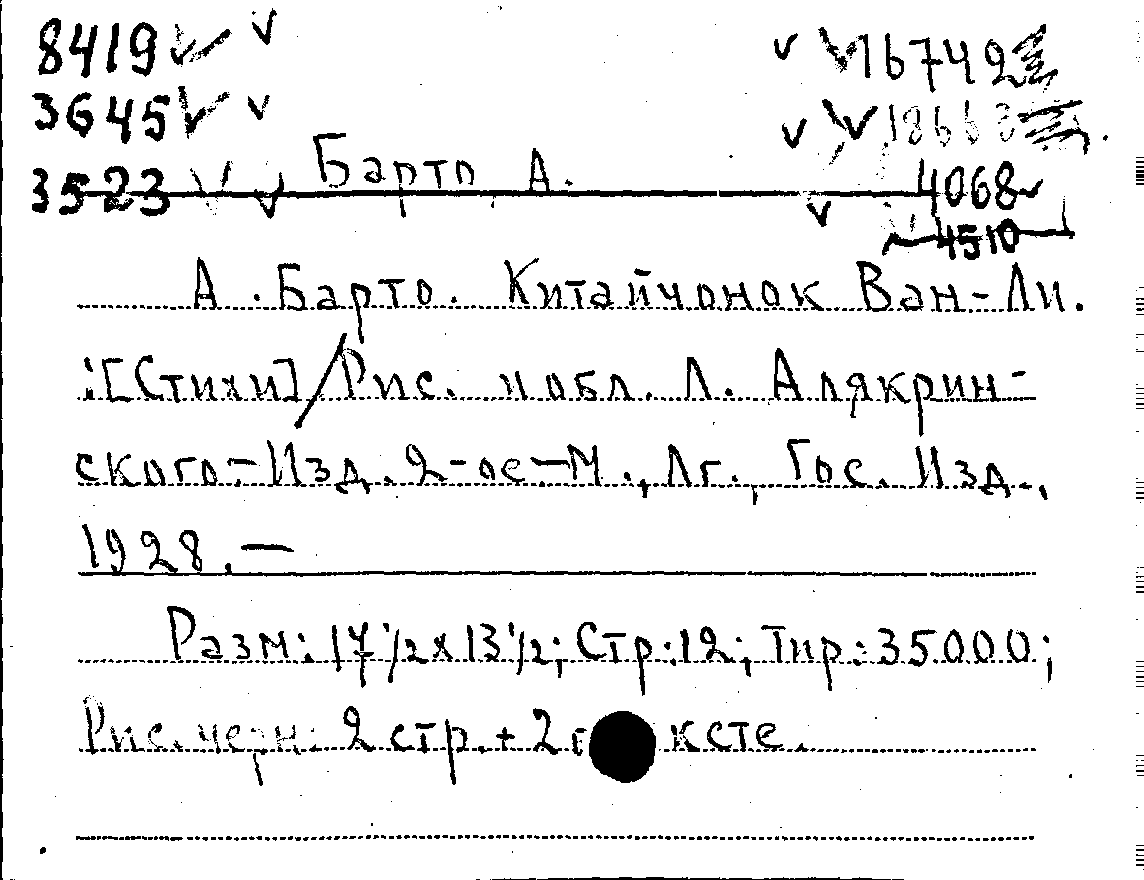 8419 16742
3645 18663
3523 Барто А. 4068
4510
А. Барто. Китайчонок Ван-Ли.
:[Стихи] / Рис. и обл. Л. Алякрин-
ского.-Изд. 2-ое.-М., Лг., Гос. Изд.,
1928.—
Разм: 17 1/2 x 13 1/2; Стр.:12; Тир.: 35.000;
Рис. черн: 2 стр. + 2 ксте.